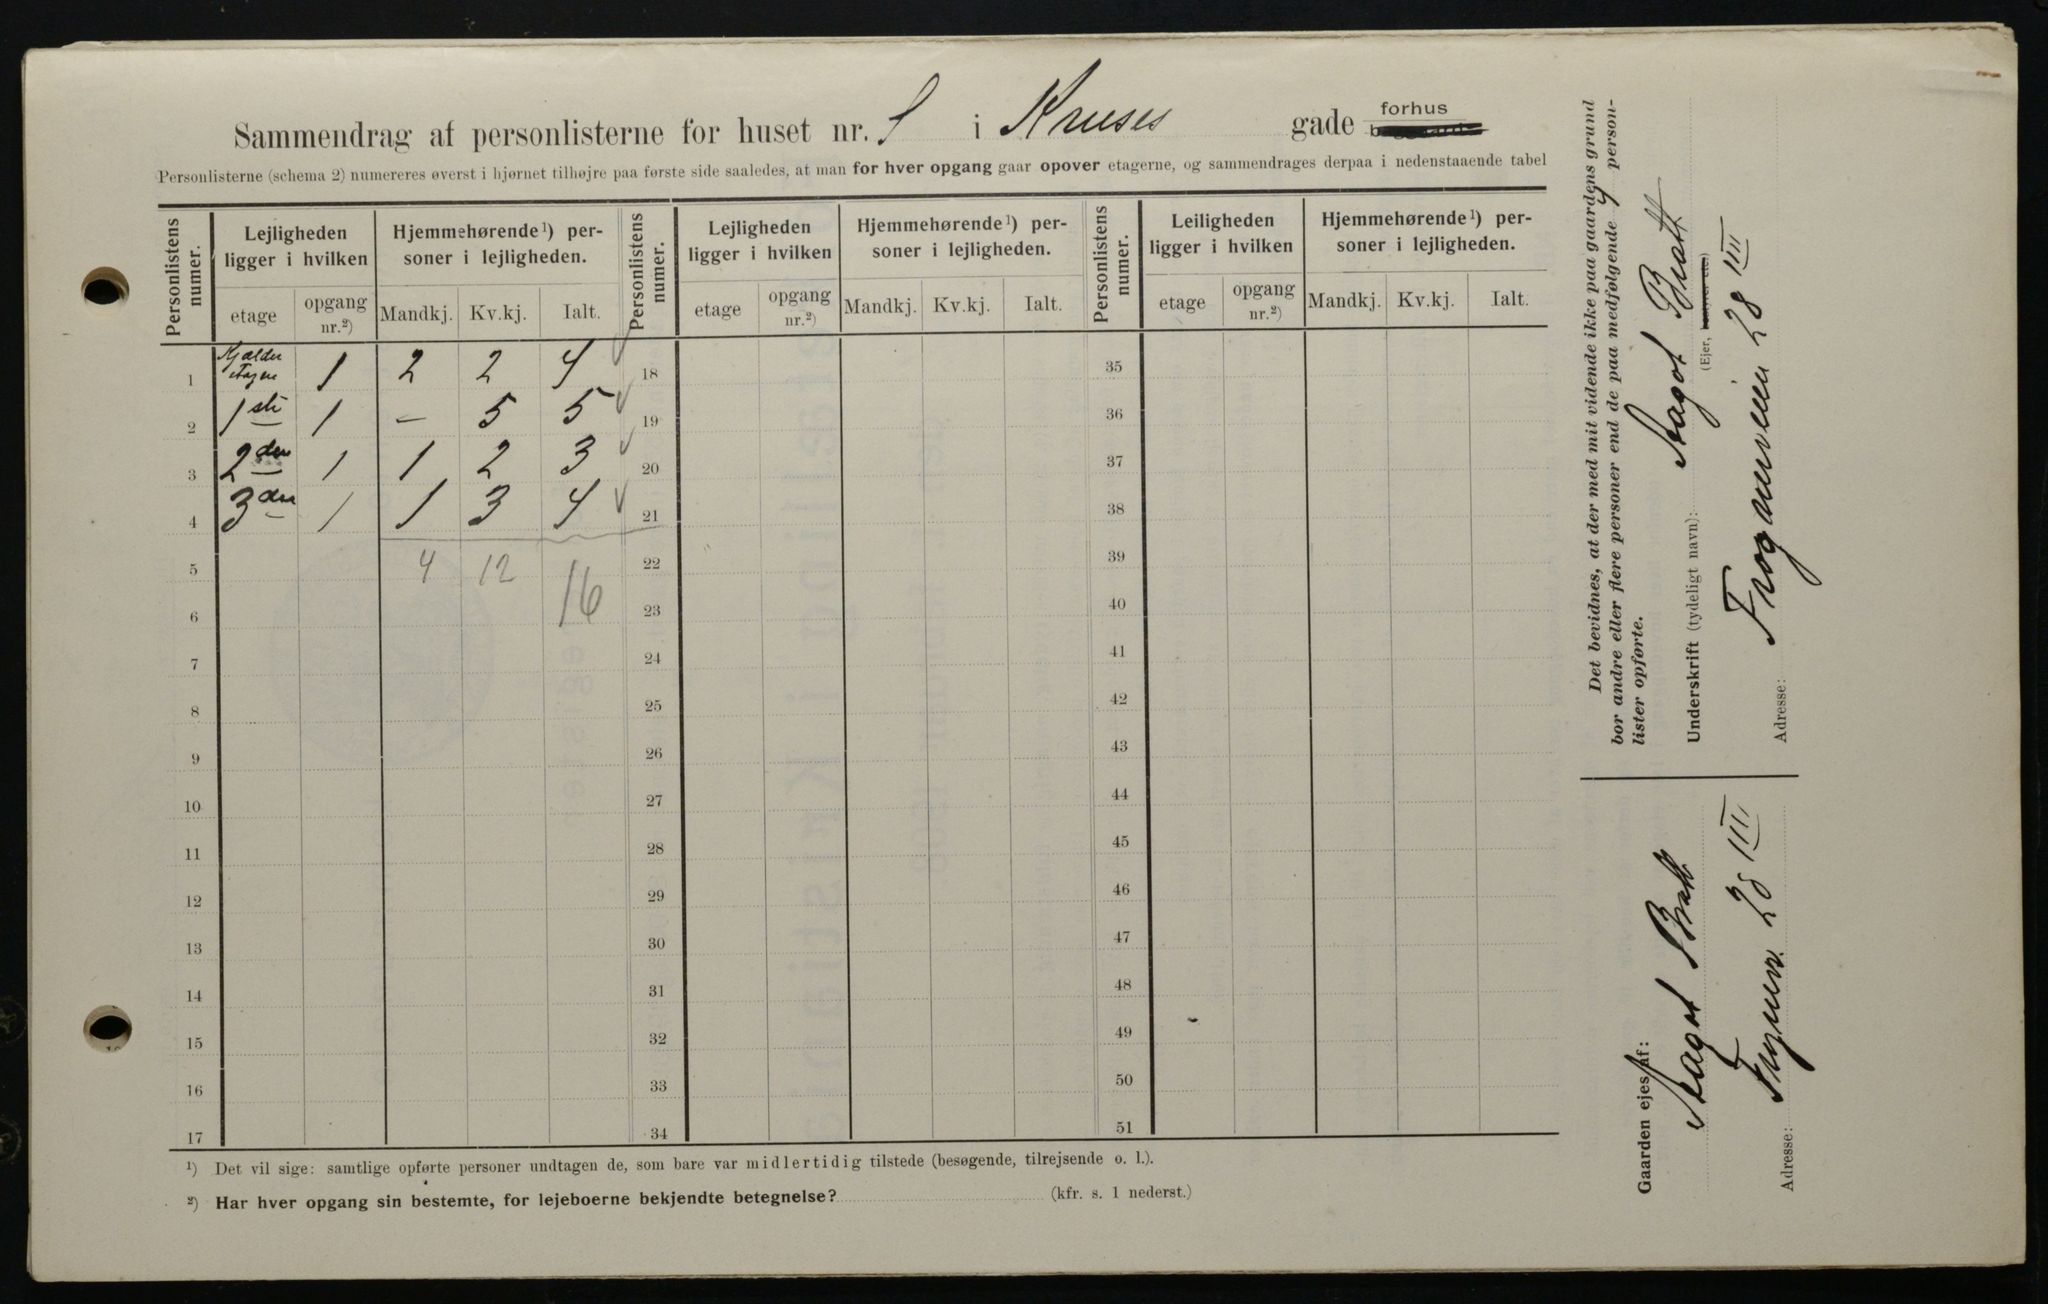 Sammendrag af personlisterne for huset nr. i Kruses gade forhus
Personlisterne (schema 2) numereres øverst i hjørnet tilhøjre paa første side saaledes, at man for hver opgang gaar opover etagerne, og sammendrages derpaa i nedenstaaende tabel
Personlistens numer. Lejligheden ligger i hvilken Hjemmehørende ¹) personer i lejligheden. Personlistens numer. Lejligheden ligger i hvilken Hjemmehørende ¹) personer i lejligheden. Personlistens numer. Leiligheden ligger i hvilken Hjemmehørende ¹) personer i lejligheden.
etage opgang nr.²) Mandkj. Kv.kj. Ialt. etage opgang nr.²) Mandkj. Kv.kj. Ialt. etage opgang nr.²) Mandkj. Kv.kj. Ialt.
1 Kjælder etagen 1 2 2 4 18 35
2 1ste 1 – 5 5 19 36
3 2den 1 1 2 3 20 37
4 3den 1 1 3 4 21 38
5 4 12 16 22 39
6 23 40
7 24 41
8 25 42
9 26 43
10 27 44
11 28 45
12 29 46
13 30 47
14 31 48
15 32 49
16 33 50
17 34 51
¹) Det vil sige: samtlige opførte personer undtagen de, som bare var midlertidig tilstede (besøgende, tilrejsende o. l.).
²) Har hver opgang sin bestemte, for lejeboerne bekjendte betegnelse? (kfr. s. 1 nederst.)
Det bevidnes, at der med mit vidende ikke paa gaardens grund
bor andre eller flere personer end de paa medfølgende 4 person-
lister opførte.
Underskrift (tydeligt navn): Aagot Bratt
(Ejer, bestyrer etc.)
Adresse: Frognerveien 28 III
Gaarden ejes af: Aagot Bratt
Adresse: Frognerv. 28 III